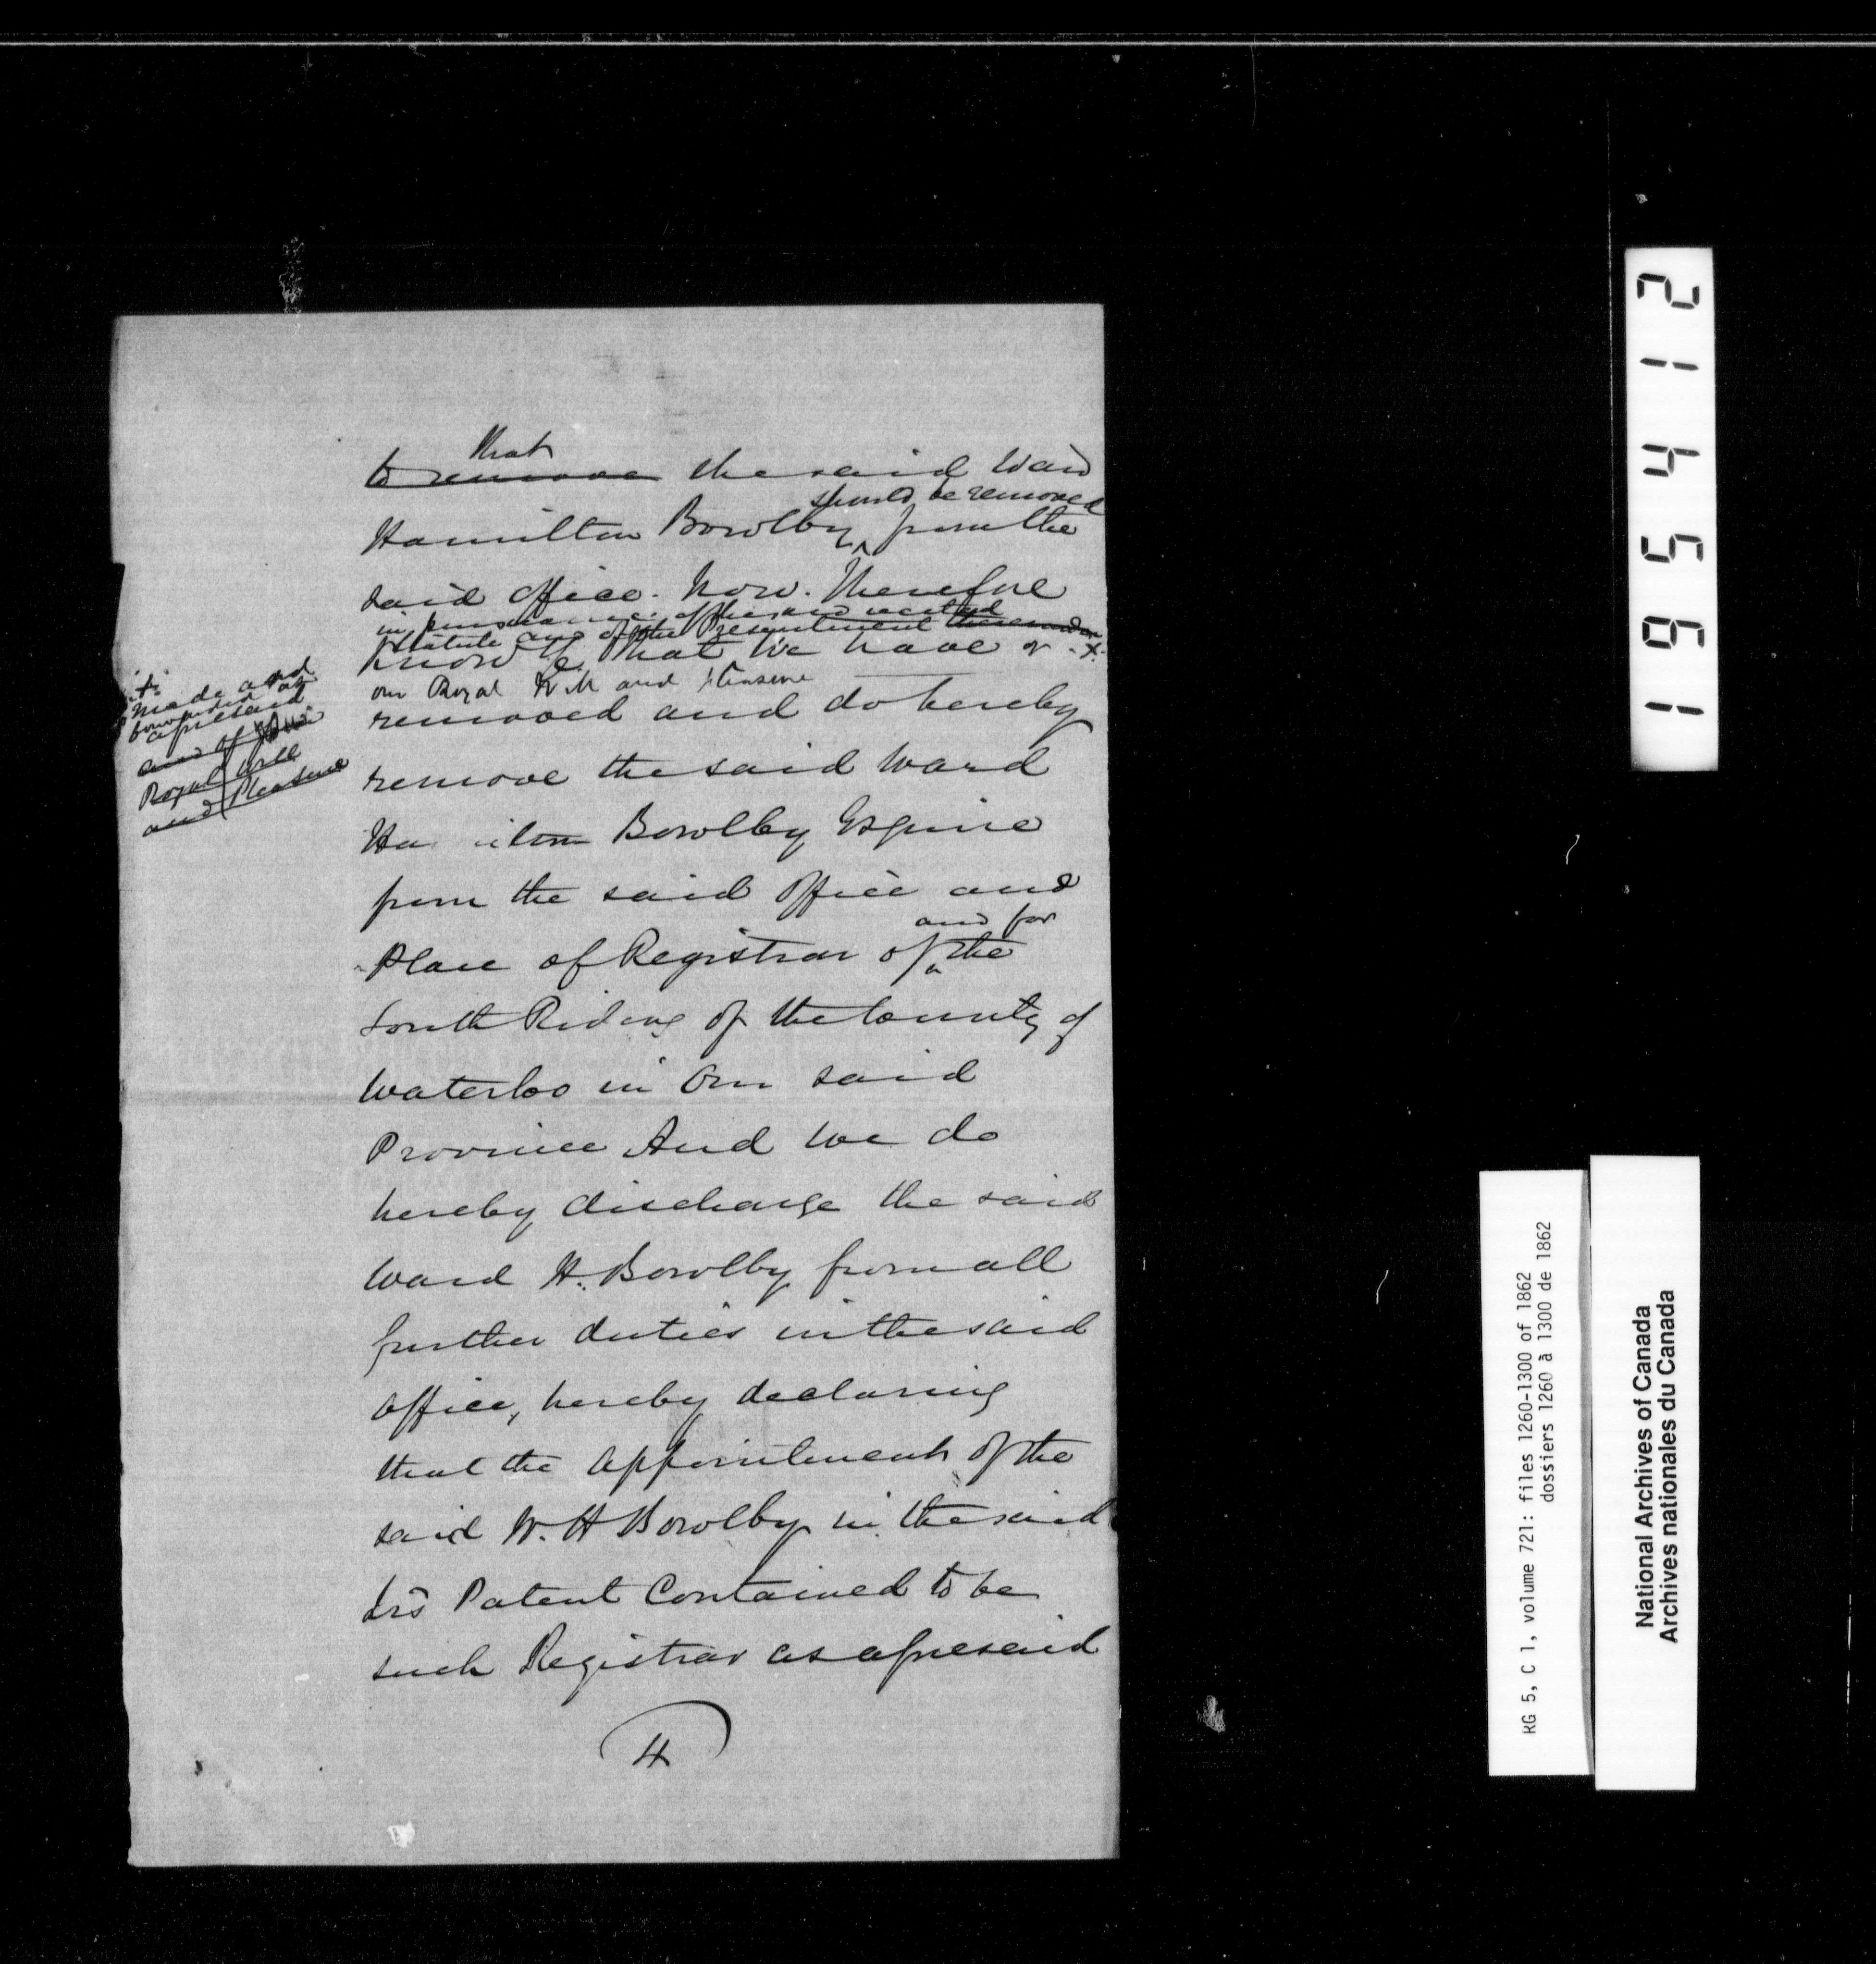 that
to remove the said Ward
should be removed
Hamilton Bowlby from the
said office. Now. Therefore
in pursuance of the said recited
Statute and of the Presentment thereunder
Know Ye that We have of x
our Royal Will and Pleasure
removed and do hereby
x
made and
forwarded as
aforesaid
and of Our
Royal Will
and Pleasure
remove the said Ward
Ha ilton Bowlby Esquire
from the said office and
and for
Place of Registrar of the
South Riding of the County of
Waterloo in Our said
Province And We do
hereby discharge the said
Ward H. Bowlby from all
further duties in the said
office, hereby declaring
that the appointment of the
said W. H Bowlby in the said
Lrs Patent Contained to be
such Registrar as aforesaid
4
195412
RG 5, C 1, volume 721: files 1260-1300 of 1862
dossiers 1260 à 1300 de 1862
National Archives of Canada
Archives nationales du Canada